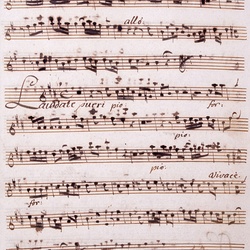 allo.
Laudate pueri pio for.
pio.
pio. Vivace.
for.